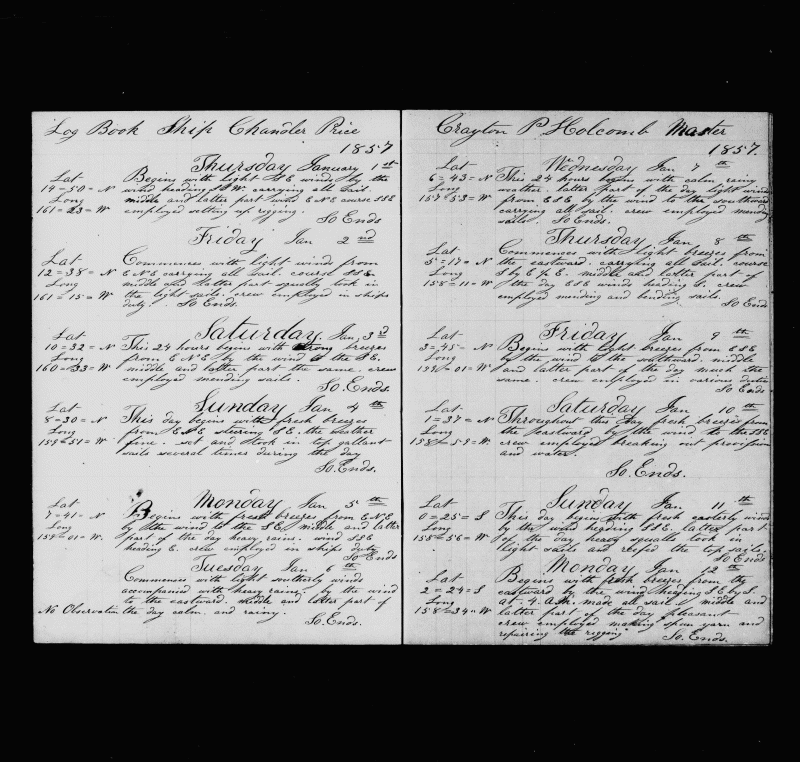 Log Book Ship Chandler Price
1857
Thursday January 1st
Lat
14=50=N
Long
161=23=W
Begins with light S E winds by the
wind heading S W. carrying all sail.
middle and latter part wind E N E course SSE
employed setting up rigging.
So Ends
Friday Jan 2nd
Lat
12=38=N
Long
161=15=W
Commences with light winds from
E N E carrying all sail. course S S E
middle and latter part squally took in
the light sails. crew employed in ships
duty. So Ends
Saturday Jan 3d
Lat
10=32=N
Long
160=33=W
This 24 hours begins with strong breezes
from E N E by the wind to the S E.
middle and latter part the same. crew
employed mending sails.
So Ends.
Sunday Jan 4th
Lat
8=30=N
Long
159=51=W
This day begins with fresh breezes
from E N E steering S E. the weather
fine. set and took in top gallant
sails several times during the day
So Ends.
Monday Jan 5th
Lat
7=41=N
Long
159=01=W.
Begins with fresh breezes from E N E
by the wind to the S E. middle and latter
part of the day heavy rains. wind SSE
heading E. crew employed in ships duty
So Ends
Tuesday Jan 6th
Commences with light southerly winds
accompanied with heavy rains. by the wind
to the eastward. middle and latter part of
No Observation the day calm. and rainy.
So Ends.
Crayton P Holcomb Master
1857.
Wednesday Jan 7th
Lat
6=43=N
Long
157=53=W
This 24 hours begins with calm rainy
weather. latter part of the day light winds
from E S E by the wind to the southward
carrying all sail. crew employed mending
sails. So Ends.
Thursday Jan 8th
Lat
5=17=N
Long
158=11=W
Commences with light breezes from
the eastward. carrying all sail. course
S by E ½ E. middle and latter part of
the day E S E winds heading S. crew
employed mending and bending sails.
So Ends
Friday Jan 9th
Lat
3=45=N
Long
=01=W
Begins with light breezes from E S E
by the wind to the southward. middle
and latter part of the day much the
same. crew employed in various duties
So Ends
Saturday Jan 10th
Lat
1=37=N
Long
158=59=W
Throughout this day fresh breezes from
the eastward by the wind to the SSE
crew employed breaking out provision
and water.
So Ends.
Sunday Jan 11th
Lat
0=25=S
Long
158=56=W
This day begins with fresh easterly winds
by the wind heading S S E. latter part
of the day heavy squalls took in
light sails and reefed the top sails.
So Ends
Monday Jan 12th
Lat
2=24=S
Long
158=34=W
Begins with fresh breezes from the
eastward by the wind heading S E by S.
at 4. A.M. made all sail. middle and
latter part of the day pleasant
crew employed making spun yarn and
repairing the rigging So Ends.